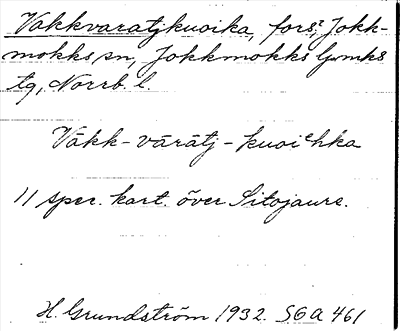 Vakkvaratjkuoika, fors, Jokk-
mokks sn, Jokkmokks lpmks
tg, Norrb. l.
Vākk-vārātj-kuoiehka
11 sper. kart. över Sitojaure.
H. Grundström 1932. SGA 461